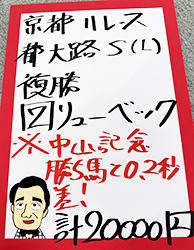 京都11レース
都大路S(L)
複勝
図リューベック
※中山記念
勝ち馬と0.2秒
差!
計20000円